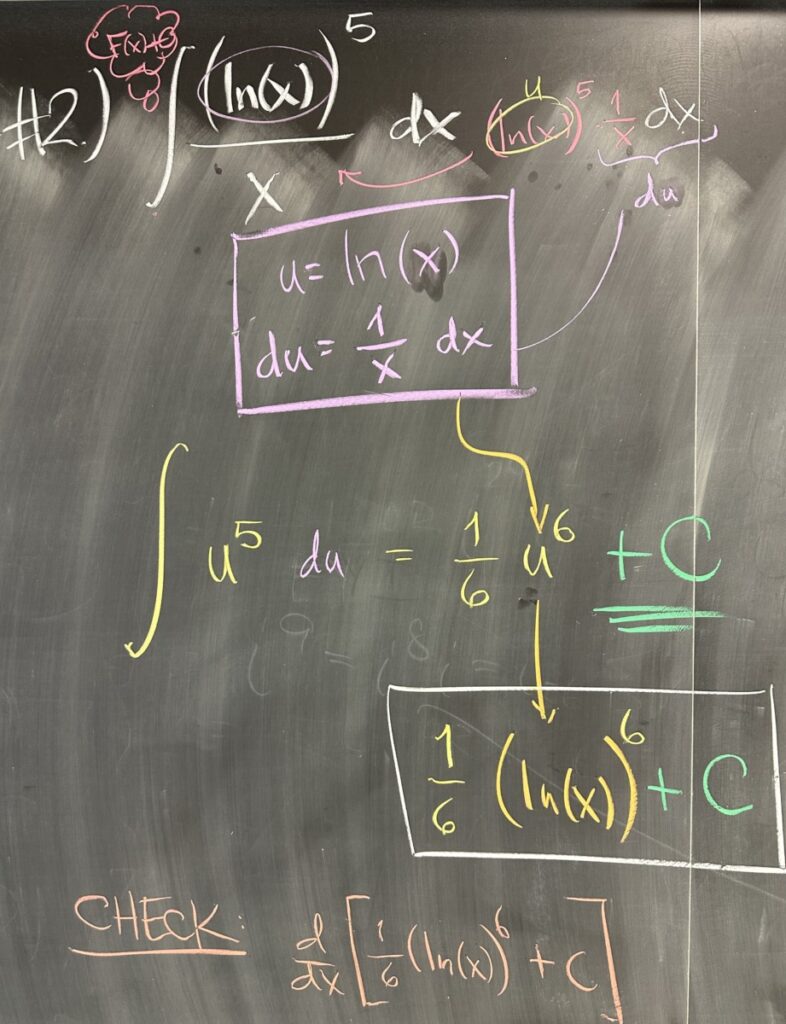 F(x)+C
#2) ∫ (ln(x))⁵/x dx (ln(x))⁵ 1/x dx
u
du
u = ln(x)
du = 1/x dx
∫ u⁵ du = 1/6 u⁶ + C
1/6 (ln(x))⁶ + C
CHECK: d/dx [1/6 (ln(x))⁶ + C]